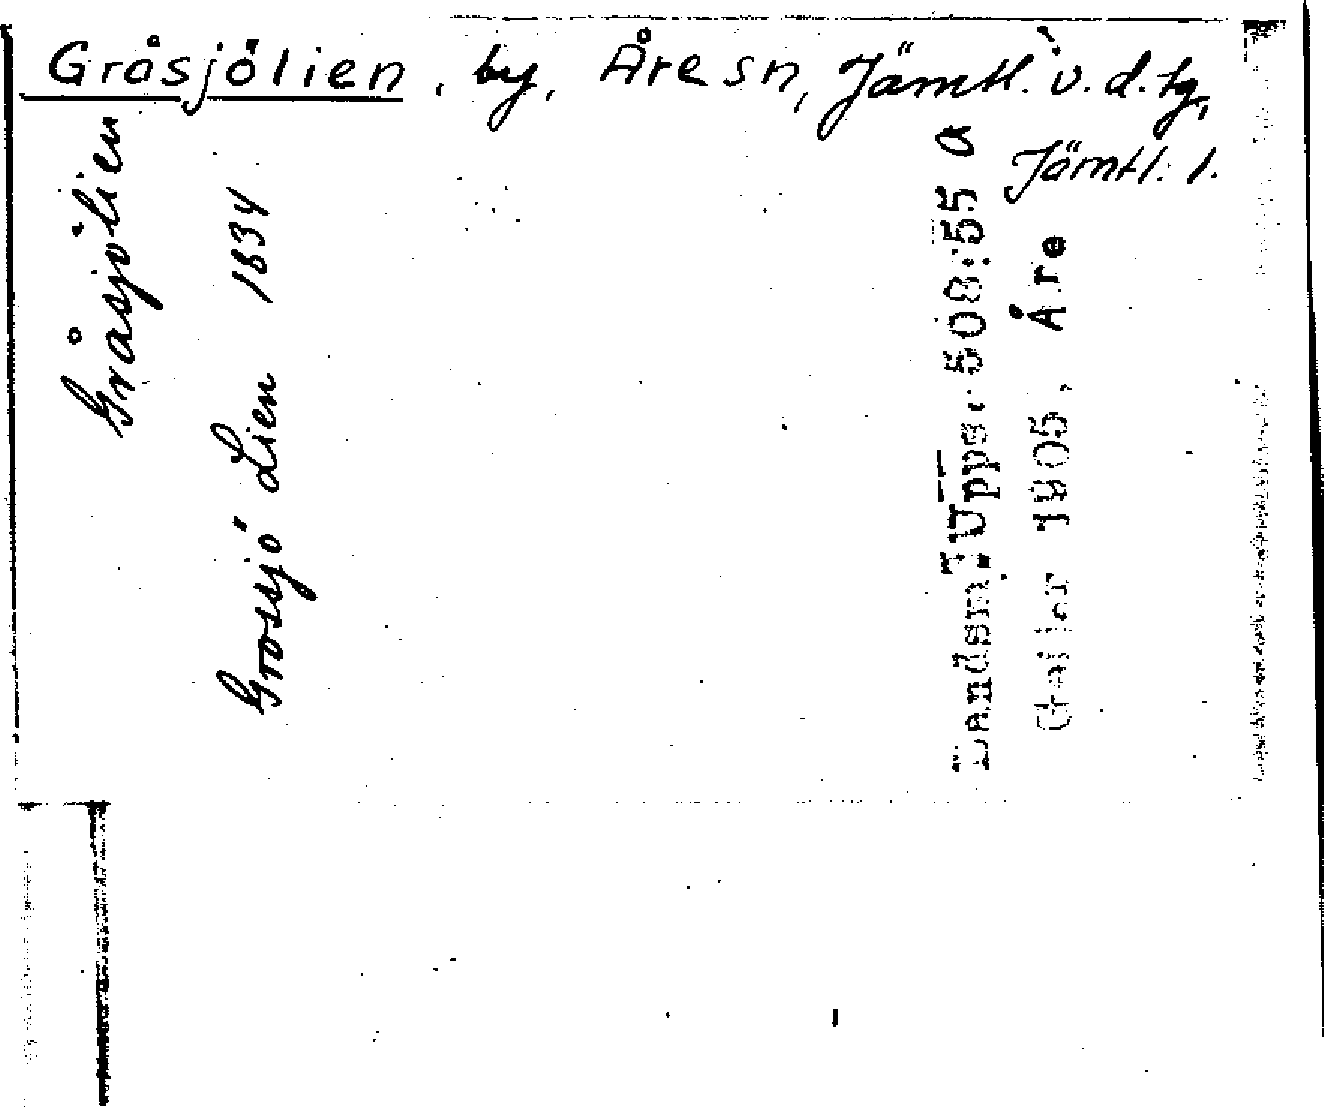 Gråsjölien, by, Åre sn, Jämtl. v. d. tg,
Jämtl. l.
Gråsjölien
Grossjö Lien 1834
Landsm. Upps. 508:55 a
Geijer 1905, Åre